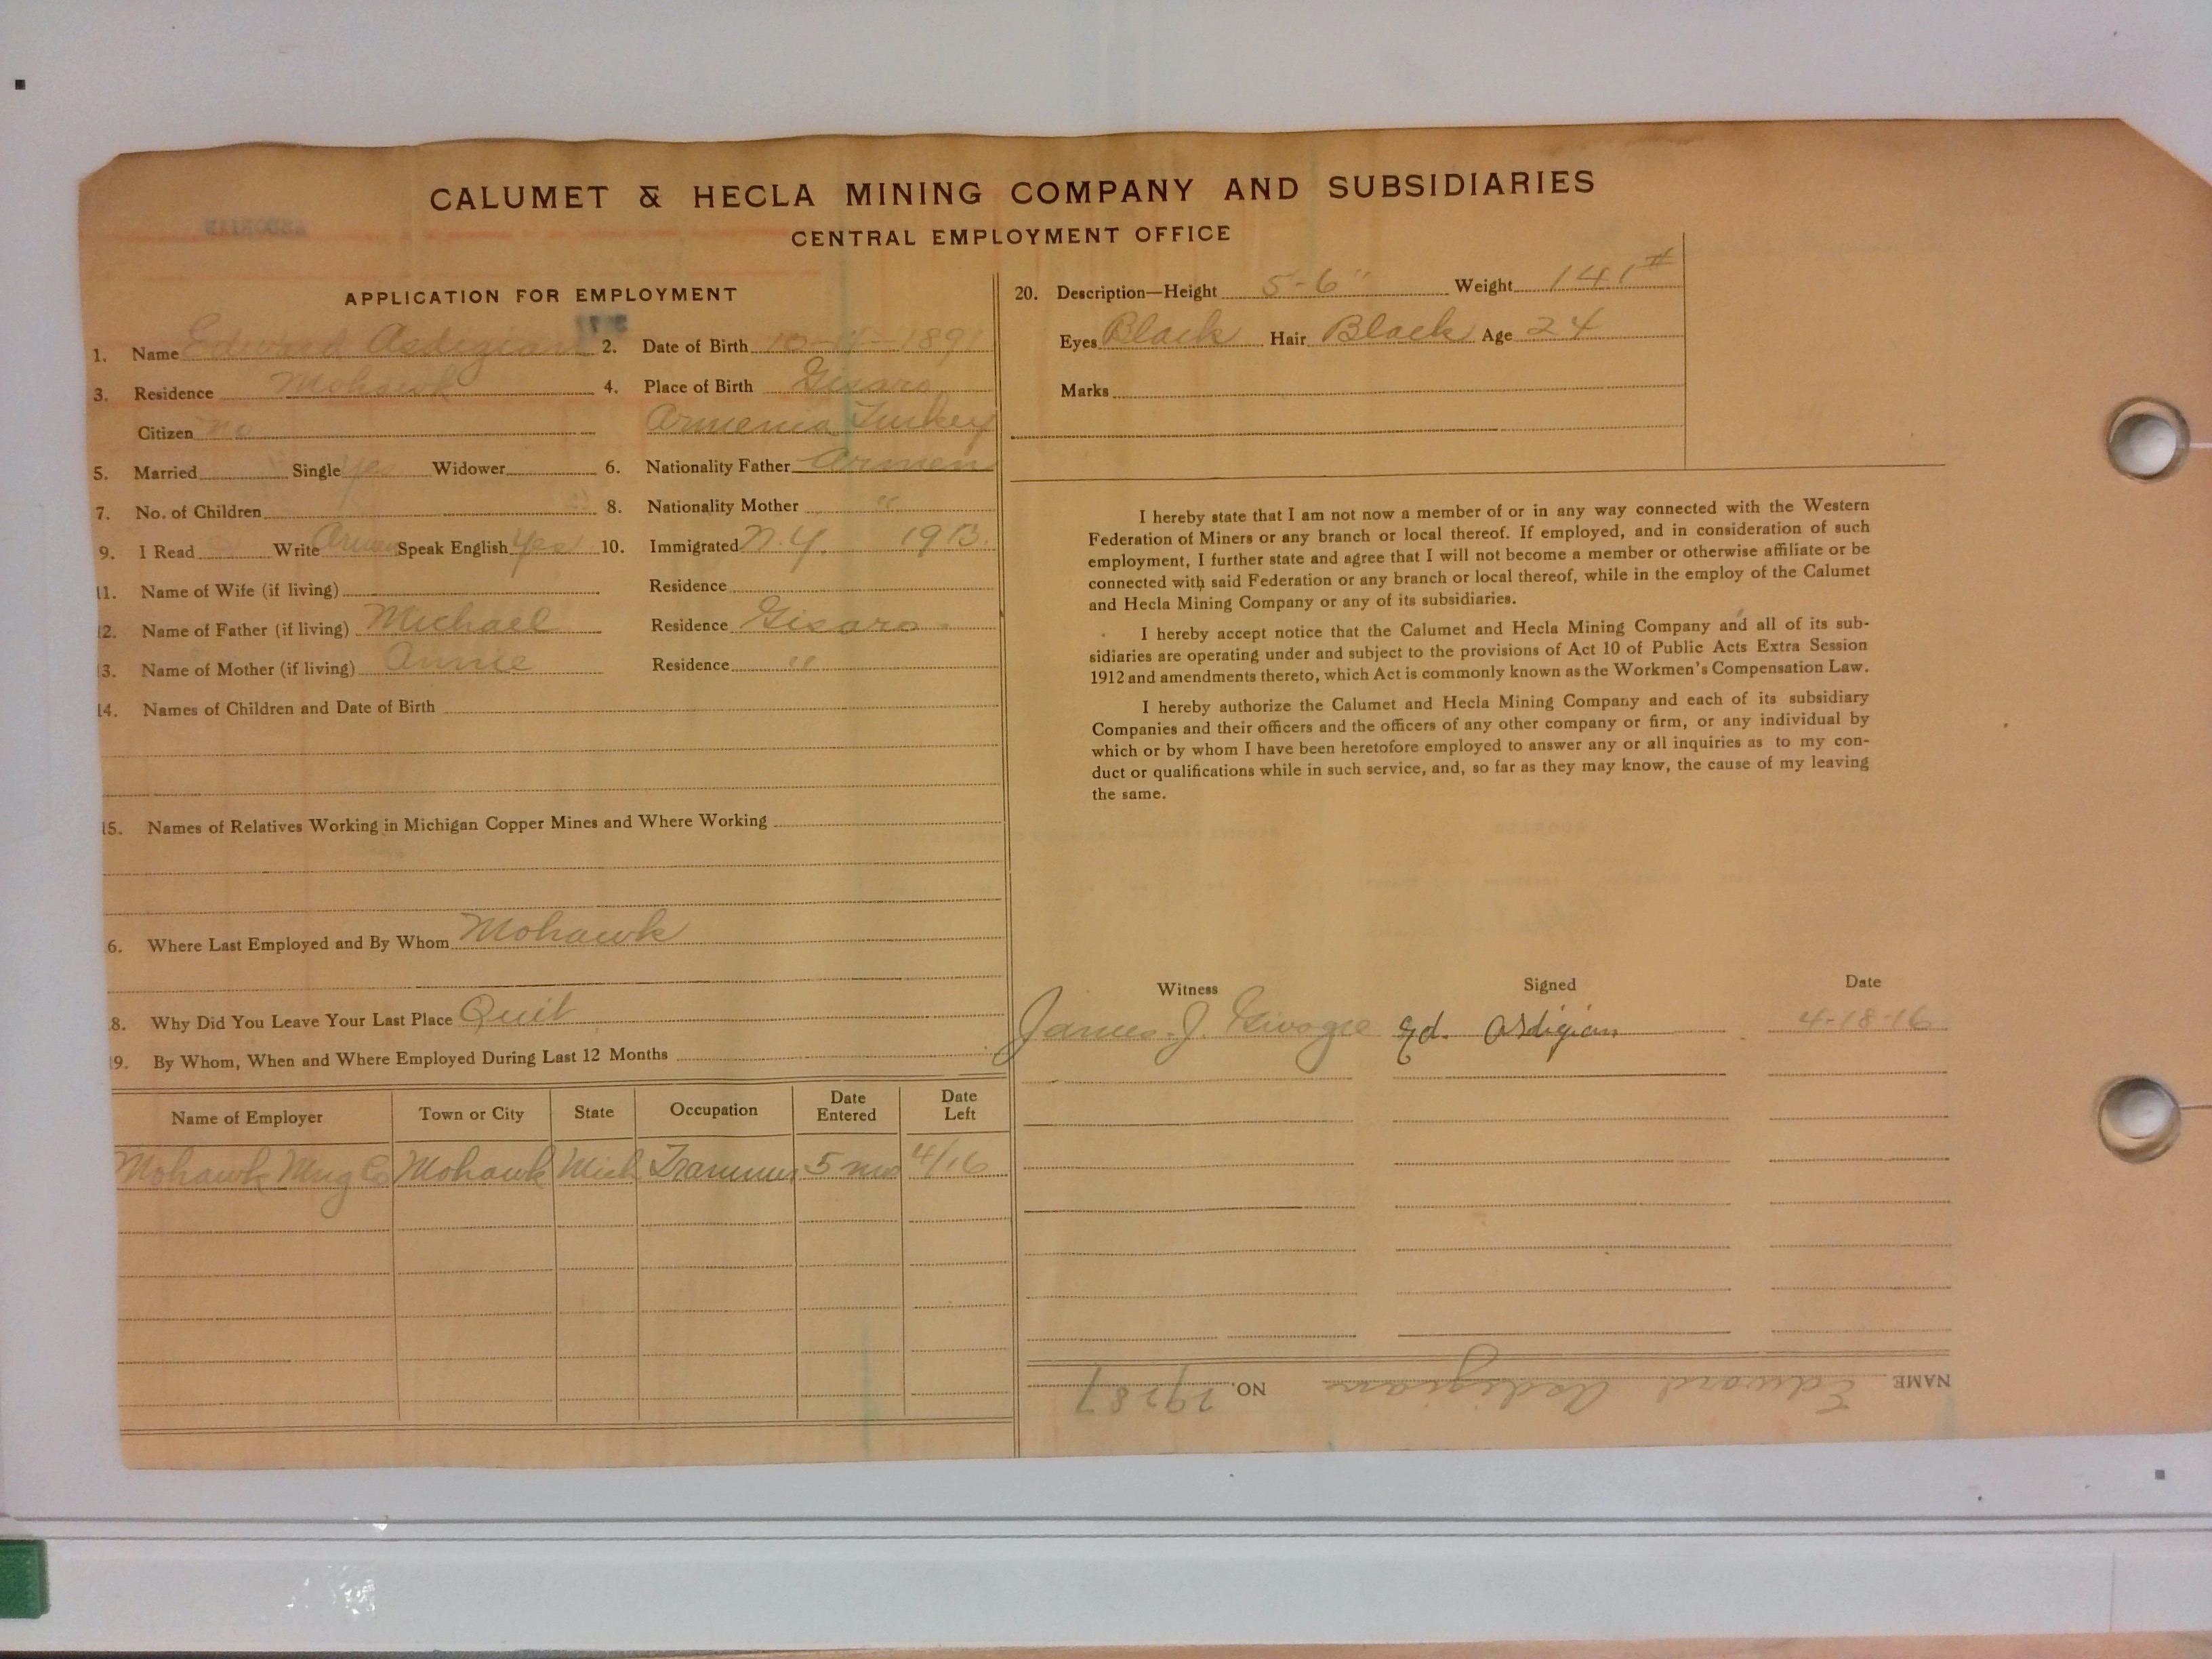 CALUMET & HECLA MINING COMPANY AND SUBSIDIARIES
CENTRAL EMPLOYMENT OFFICE
APPLICATION FOR EMPLOYMENT
1. Name Edward Asdigian 2. Date of Birth 1891
3. Residence Mohawk 4. Place of Birth
Citizen No Armenia Turkey
5. Married Single Yes Widower 6. Nationality Father Armen
7. No. of Children 8. Nationality Mother "
9. I Read Write Speak English Yes 10. Immigrated N.Y. 1913.
11. Name of Wife (if living) Residence
12. Name of Father (if living) Michael Residence
13. Name of Mother (if living) Annie Residence "
14. Names of Children and Date of Birth
15. Names of Relatives Working in Michigan Copper Mines and Where Working
6. Where Last Employed and By Whom Mohawk
8. Why Did You Leave Your Last Place Quit
9. By Whom, When and Where Employed During Last 12 Months
Name of Employer Town or City State Occupation Date Entered Date Left
Mohawk Mng Co Mohawk Mich Trammer 5 mos 4/16
20. Description—Height 5-6" Weight 141#
Eyes Black Hair Black Age 24
Marks
I hereby state that I am not now a member of or in any way connected with the Western
Federation of Miners or any branch or local thereof. If employed, and in consideration of such
employment, I further state and agree that I will not become a member or otherwise affiliate or be
connected with said Federation or any branch or local thereof, while in the employ of the Calumet
and Hecla Mining Company or any of its subsidiaries.
I hereby accept notice that the Calumet and Hecla Mining Company and all of its sub-
sidiaries are operating under and subject to the provisions of Act 10 of Public Acts Extra Session
1912 and amendments thereto, which Act is commonly known as the Workmen's Compensation Law.
I hereby authorize the Calumet and Hecla Mining Company and each of its subsidiary
Companies and their officers and the officers of any other company or firm, or any individual by
which or by whom I have been heretofore employed to answer any or all inquiries as to my con-
duct or qualifications while in such service, and, so far as they may know, the cause of my leaving
the same.
Witness Signed Date
James J. Ed. Asdigian 4-18-16
NAME Edward Asdigian NO.